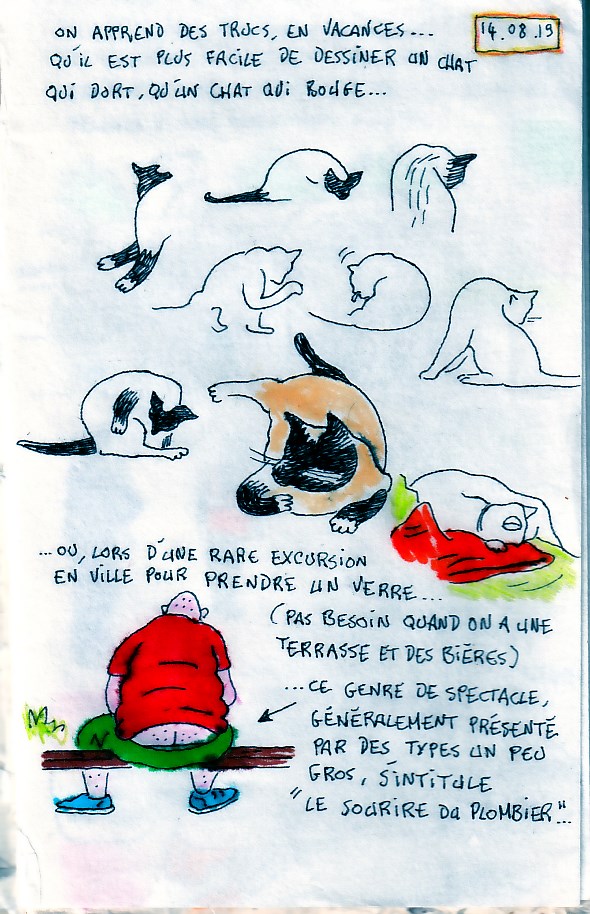 ON APPREND DES TRUCS, EN VACANCES...
14.08.19
QU'IL EST PLUS FACILE DE DESSINER UN CHAT
QUI DORT, QU'UN CHAT QUI BOUGE...
...OU, LORS D'UNE RARE EXCURSION
EN VILLE POUR PRENDRE UN VERRE...
(PAS BESOIN QUAND ON A UNE
TERRASSE ET DES BIÈRES)
...CE GENRE DE SPECTACLE,
GÉNÉRALEMENT PRÉSENTÉ
PAR DES TYPES UN PEU
GROS, S'INTITULE
"LE SOURIRE DU PLOMBIER"...